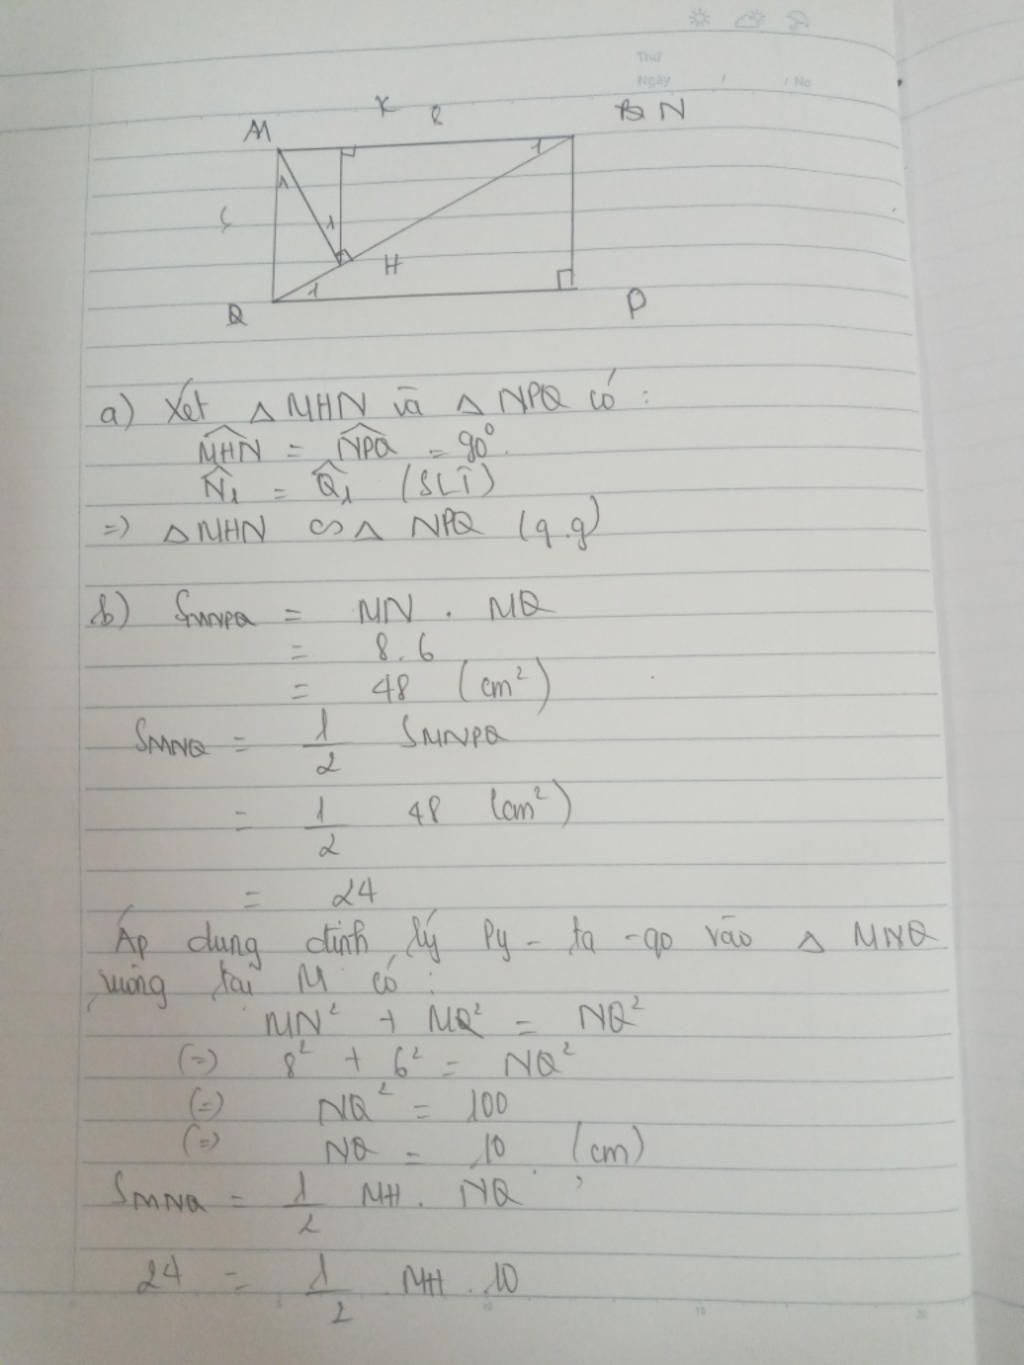 Thứ
Ngày / / No
M K 8 N
1 1
6 1
H
Q 1 P
a) Xét △ MHN và △ NPQ có :
MHN = NPQ = 90°.
N1 = Q1 (SLT)
=> △ MHN ∽ △ NPQ (g.g)
b) SMNPQ = MN . MQ
= 8.6
= 48 (cm²)
SMNQ = 1/2 SMNPQ
= 1/2 48 (cm²)
= 24
Áp dụng định lý Py - ta - go vào △ MNQ
vuông tại M có :
MN² + MQ² = NQ²
(=) 8² + 6² = NQ²
(=) NQ² = 100
(=) NQ = 10 (cm)
SMNQ = 1/2 MH . NQ
24 = 1/2 . MH . 10